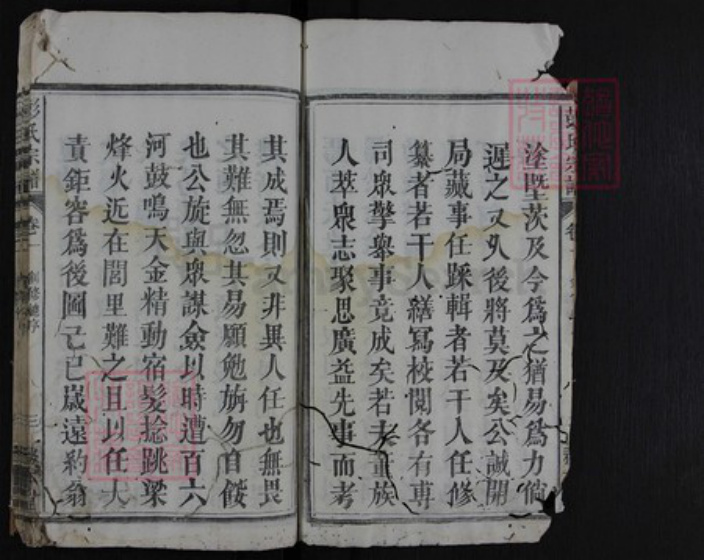 塗墍茨及今爲之猶易爲力倘
遲之又久後將莫及矣公誠開
局蕆事任蹂輯者若干人任修
纂者若干人繕寫校閱各有專
司眾擎舉事竟成矣若夫彙族
人萃眾志聚思廣益先事而考
其成焉則又非異人任也無畏
其難無忽其易願勉旃勿自餒
也公旋與眾謀僉以時遭百六
河鼓鳴天金精動宿髮捻跳梁
烽火近在閭里難之且以任大
責鉅容爲後圖己巳歲遠約翁
彭氏宗譜
卷一